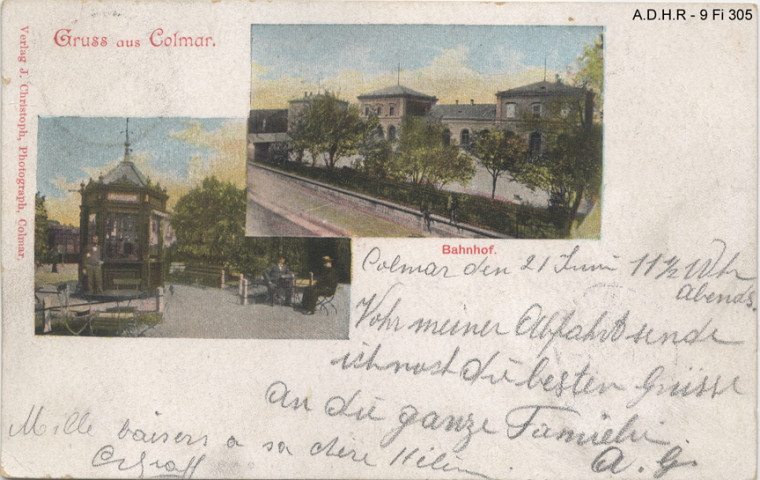 A.D.H.R - 9 Fi 305
Gruss aus Colmar.
Verlag J. Christoph, Photograph, Colmar.
Bahnhof.
Colmar den 21 Juni 11½ Uhr
Abends.
Vohr meiner Abfahrt sende
ich noch die besten Grüsse
an die ganze Familie.
A. G.
Mille baisers a sa chère Hélène